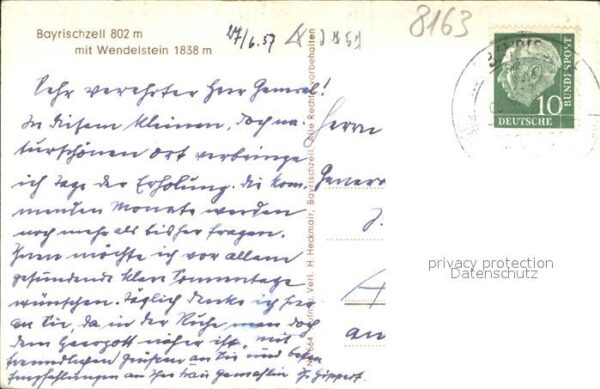 Bayrischzell 802 m
mit Wendelstein 1838 m
27/6.57
8163
10
DEUTSCHE
BUNDESPOST
Sehr verehrter Herr General!
In diesem kleinen, doch na-
turschönen Ort verbringe
ich Tage der Erholung. die kom-
menden Monate werden
noch mehr als bisher fragen.
Ihnen möchte ich vor allem
gesündende klare Sommertage
wünschen. Täglich denke ich hier
an Sie, da in der Ruhe man doch
dem Herrgott näher ist, mit
freundlichen Grüßen an Sie und besten
Empfehlungen an Ihre Frau Gemahlin
Herrn
General
J.
A
an
Verl. H. Heckmair, Bayrischzell, Alle Rechte vorbehalten
privacy protection
Datenschutz